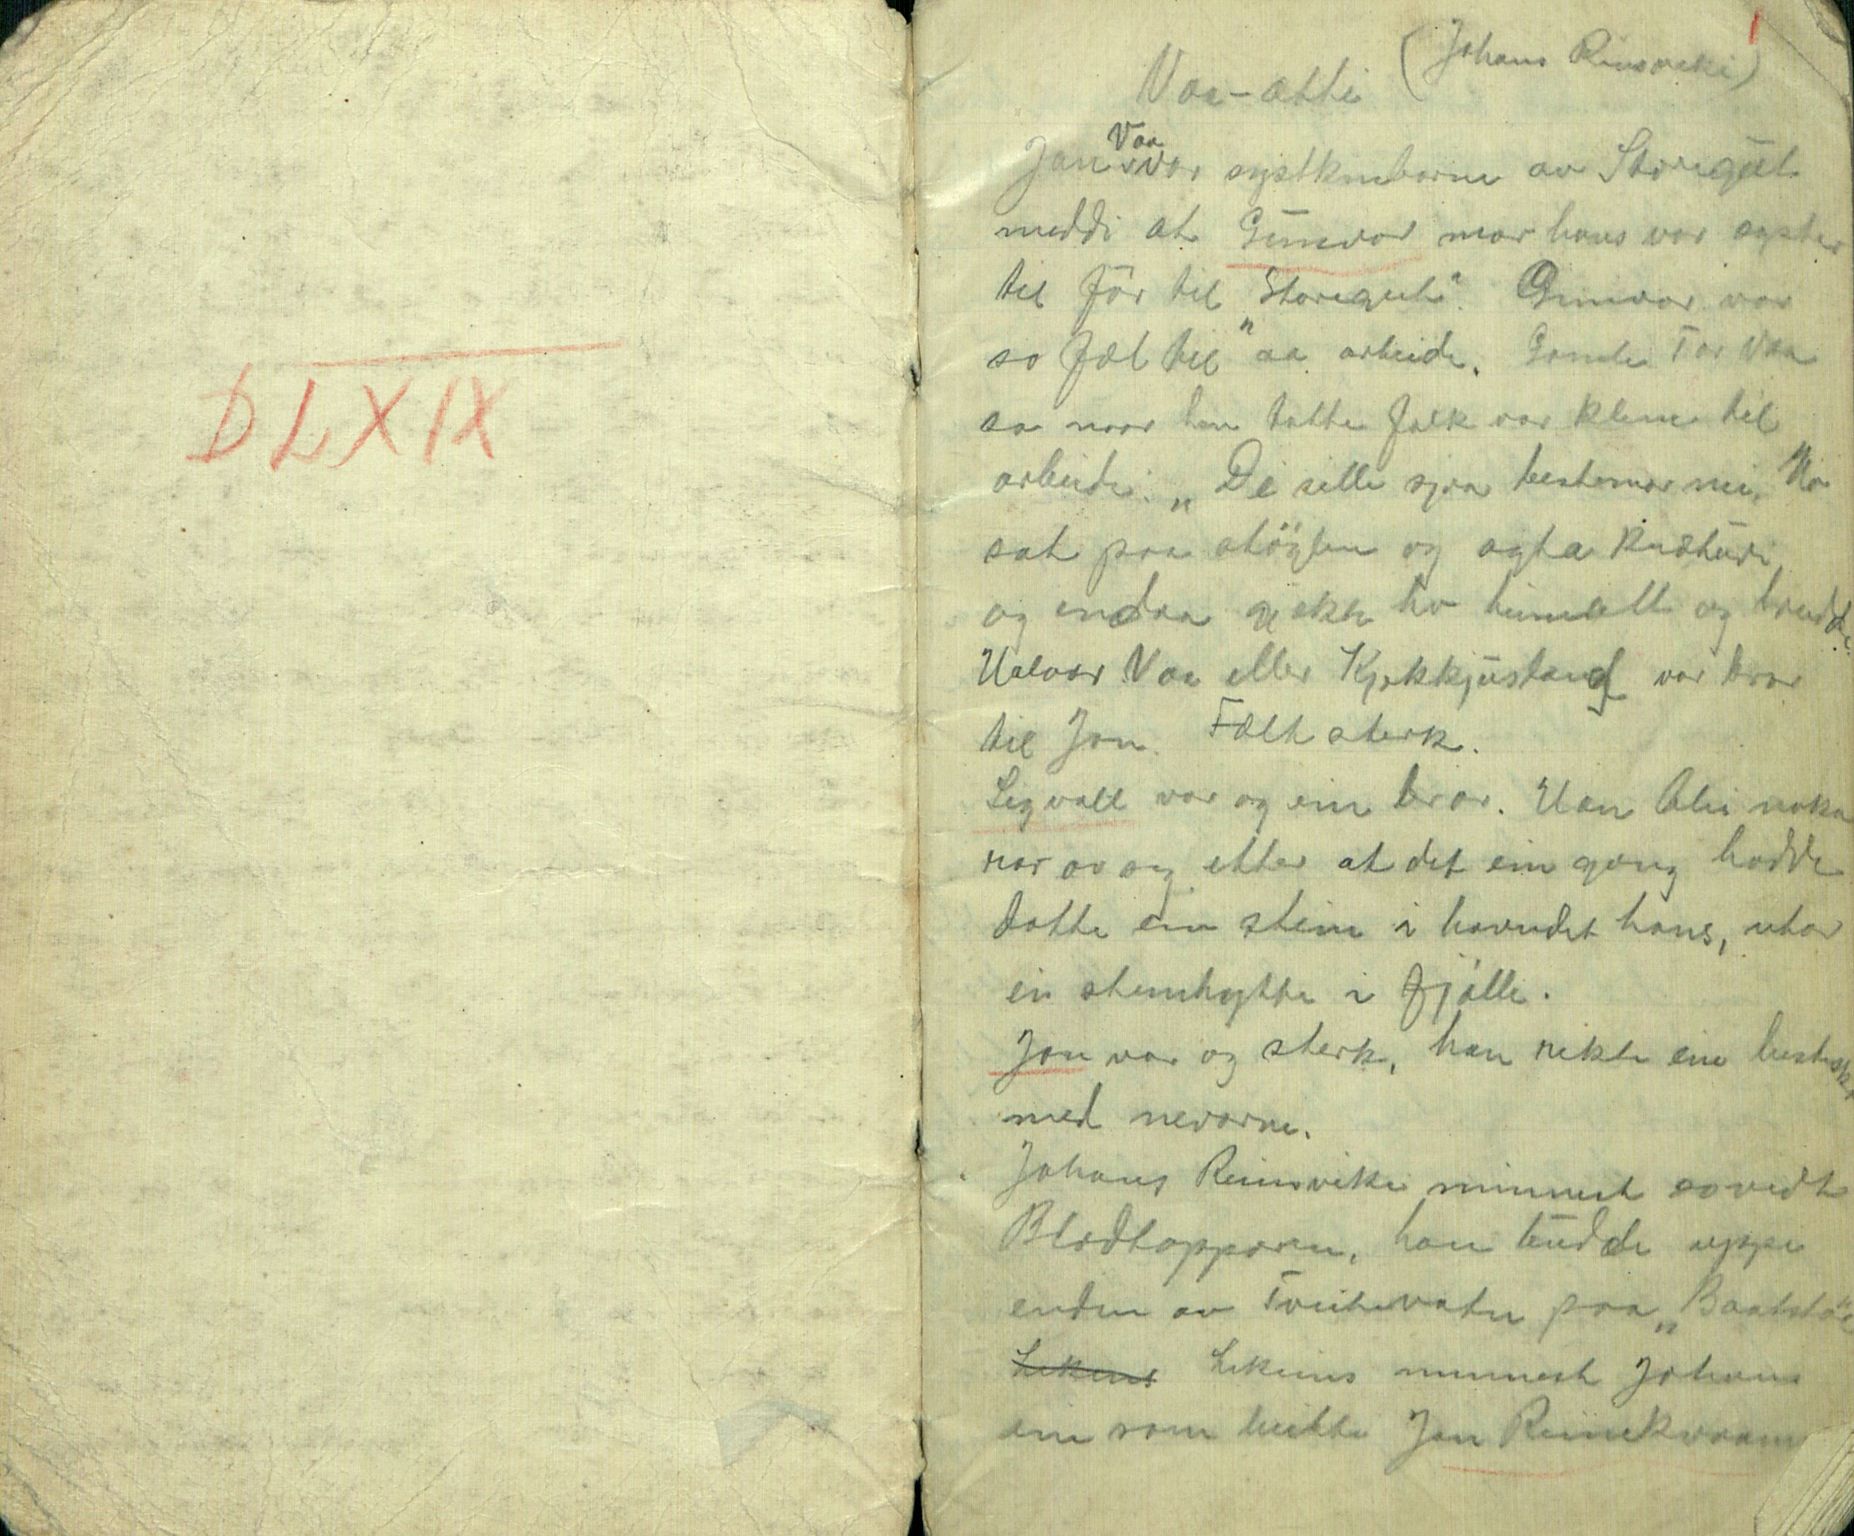 DLXIX
1
(Johans Rinsveki)
Vaa-ætti
Vaa
Jon var systkinborne av Storegut
meddi at Gunvor mor hans var syster
til får til "Storegut". Gunvor var
so fæl til aa arbeide. Gamle Tor Vaa
sa naar han totte folk var klene til
arbeide: "De sille sjaa bestemor mi, Ho
sat paa støylen og agta krøturi
og endaa gjekk ho heimatt og breidde.
Halvor Vaa eller Kjekkjustand var bror
til Jon. Fælt sterk.
Sigvall var og ein bror. Han blei noko
rar av seg etter at det ein gong hadde
dotte ein stein i hovudet hans, utor
ei steinhytte i fjølle.
Jon var og sterk, han rekte ein hestesko
med nevarne.
Johans Reinsvike minnest sovidt
Blodtapparen, han budde uppe
enden av Tveitevatne paa "Baatstø"
Likeins Likeins minnest Johans
ein som heitte Jon Reinekvaam